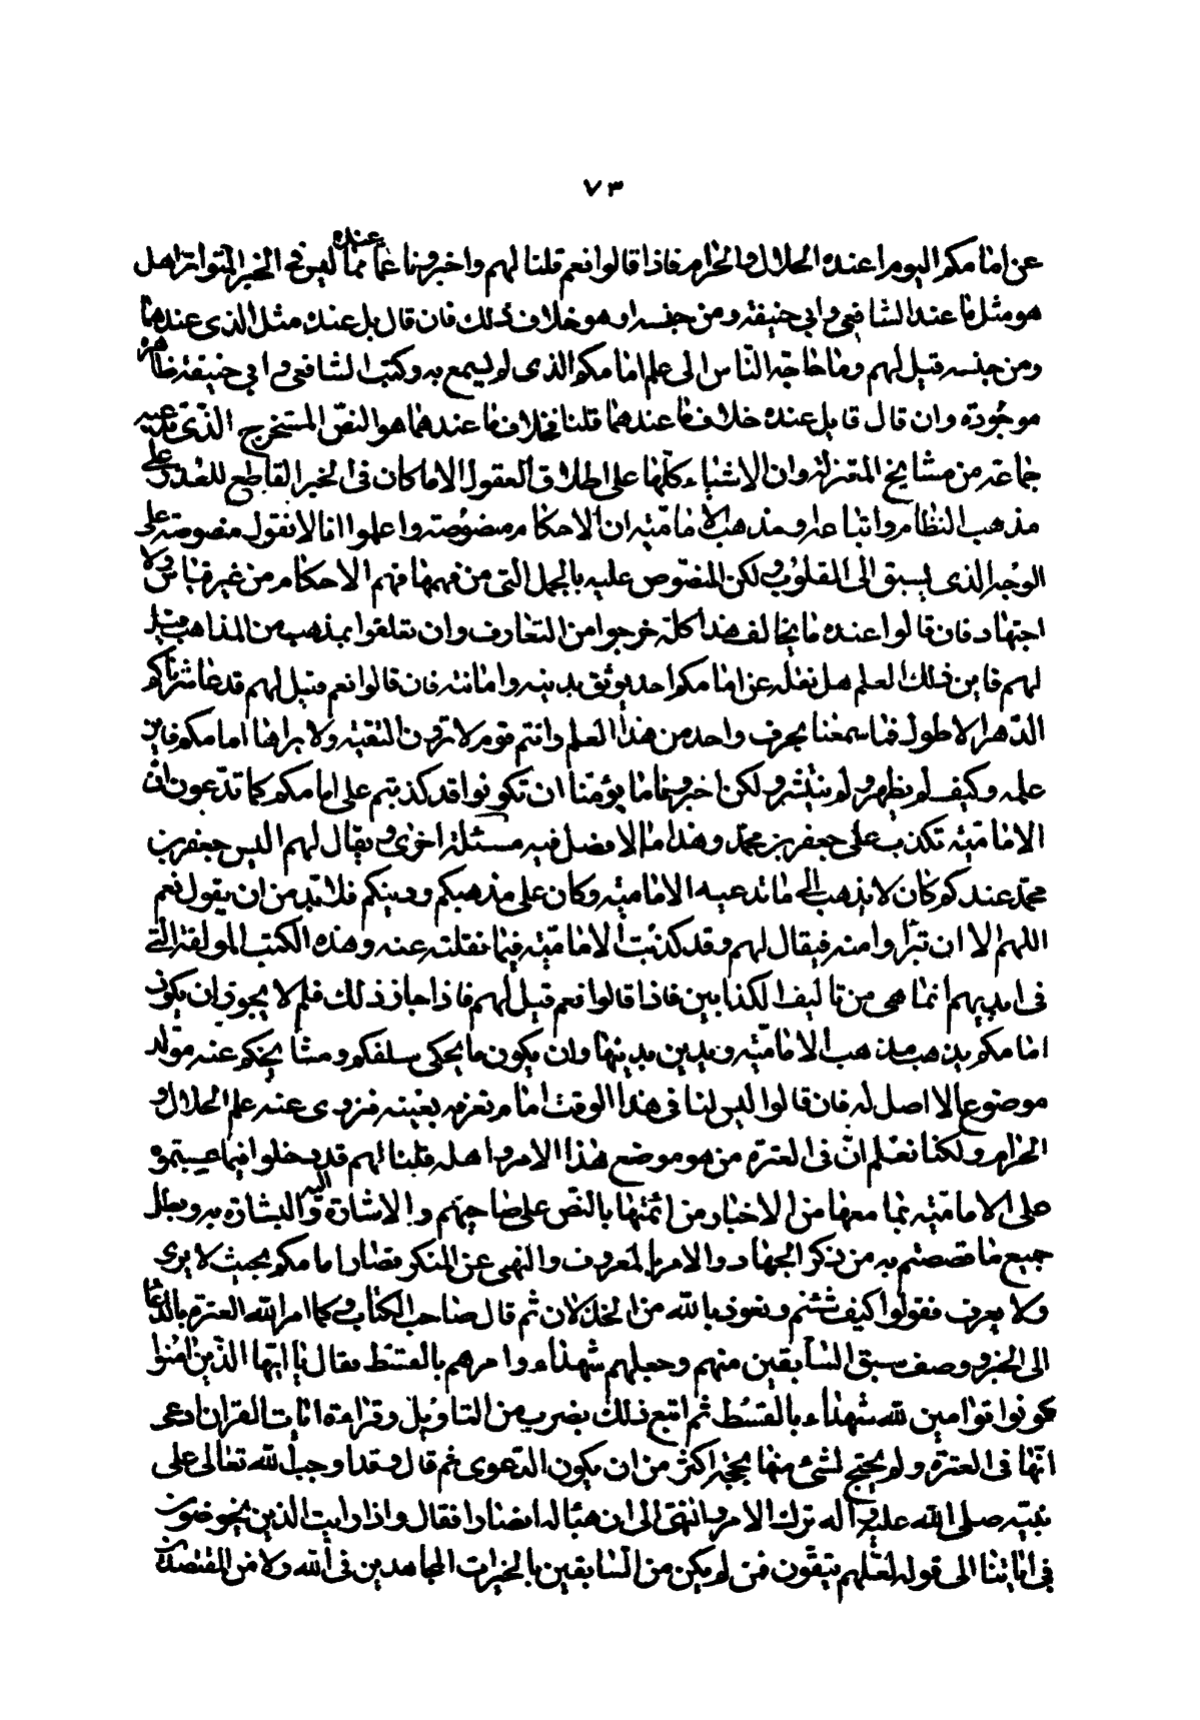 ٧٣
عن امامكم اليوم اعنده الحلال والحرام فاذا قالوا نعم قلنا لهم واخبرونا عما عنده مما ليس في الخبر المتواتر اهل
هو مثل ما عند الشافعي وابي حنيفة ومن جنسه او هو خلاف ذلك فان قال بل عنده مثل الذي عندهما
ومن جنسه قيل لهم وما حاجة الناس الى علم امامكم الذي لم يسمع به وكتب الشافعي وابي حنيفة ظاهرة
موجودة وان قال قايل عنده خلاف ما عندهما قلنا فخلاف ما عندهما هو النص المستخرج الذي تدعيه
جماعة من مشايخ المعتزلة وان الاشياء كلها على اطلاق العقول الا ما كان في الخبر القاطع للعذر على
مذهب النظام واتباعه او مذهب الامامية ان الاحكام منصوصة واعلموا انا لا نقول منصوصة على
الوجه الذي يسبق الى القلوب ولكن المنصوص عليه بالجمل التي من فهمها فهم الاحكام من غير قياس ولا
اجتهاد فان قالوا عنده ما يخالف هذا كله خرجوا من التعارف وان تعلقوا بمذهب من المذاهب قيل
لهم فاين ذلك العلم هل نقله عن امامكم احد يوثق بدينه وامانته فان قالوا نعم قيل لهم قد عاشرناكم
الدهر الاطول فما سمعنا بحرف واحد من هذا العلم وانتم قوم لا ترون التقية ولا يراها امامكم فاين
علمه وكيف لم يظهر ولم ينتشر ولكن اخبرونا ما يؤمننا ان تكونوا قد كذبتم على امامكم كما تدعون ان
الامامية تكذب على جعفر بن محمد وهذا ما لا فصل فيه مسئلة اخرى ويقال لهم اليس جعفر بن
محمد عندكم كان لا يذهب الى ما تدعيه الامامية وكان على مذهبكم ودينكم فلا بد من ان يقول نعم
اللهم الا ان تبرأوا منه فيقال لهم وقد كذبت الامامية فيما نقلته عنه وهذه الكتب المولفة التي
في ايديهم انما هي من تاليف الكذابين فاذا قالوا نعم قيل لهم فاذا جاز ذلك فلم لا يجوز ان يكون
امامكم يذهب مذهب الامامية ويدين بدينها وان يكون ما يحكى سلفكم ومشايخكم عنه مولد
موضوعا لا اصل له فان قالوا ليس لنا في هذا الوقت امام نعرفه بعينه فنروى عنه علم الحلال و
الحرام ولكنا نعلم ان في العترة من هو موضع هذا الامر واهله قلنا لهم قد دخلوا فيما عبتموه
على الامامية بما معها من الاخبار من ائمتها بالنص على صاحبهم والاشارة اليه والبشارة به وبطل
جميع ما قصصتم به من ذكر الجهاد والامر بالمعروف والنهى عن المنكر فصار امامكم بحيث لا يرى
ولا يعرف فقولوا كيف شئتم ونعوذ بالله من الخذلان ثم قال صاحب الكتاب وكما امر الله العترة بالدعا
الى الخير ووصف سبق السابقين منهم وجعلهم شهداء وامرهم بالقسط فقال يا ايها الذين امنوا
كونوا قوامين لله شهداء بالقسط ثم اتبع ذلك بضرب من التاويل وقراءة ايات القران ادعى
انها في العترة ولم يحتج لشئ منها بحجة اكثر من ان يكون الدعوى ثم قال وقد اوجب الله تعالى على
نبيه صلى الله عليه وآله ترك الامر والنهى الى ان هيا له انصارا فقال واذا رايت الذين يخوضون
في اياتنا الى قوله لعلهم يتقون فمن لم يكن من السابقين بالخيرات المجاهدين في الله ولا من المقتصدين